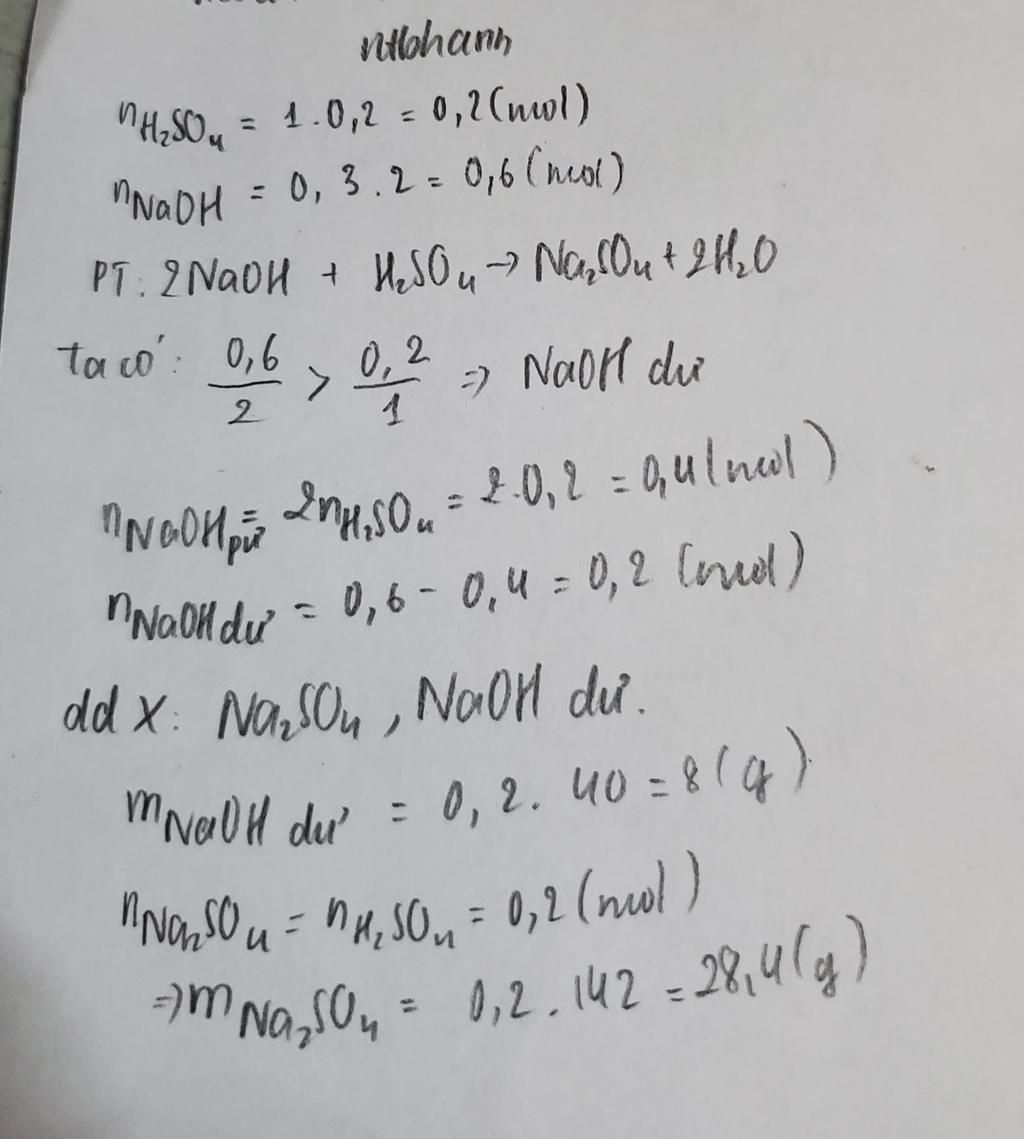 ntbhann
nH₂SO₄ = 1.0,2 = 0,2(mol)
nNaOH = 0,3.2 = 0,6(mol)
PT: 2NaOH + H₂SO₄ → Na₂SO₄ + 2H₂O
ta có: 0,6/2 > 0,2/1 => NaOH dư
nNaOH pư = 2nH₂SO₄ = 2.0,2 = 0,4(mol)
nNaOH dư = 0,6 - 0,4 = 0,2 (mol)
dd X: Na₂SO₄, NaOH dư.
mNaOH dư = 0,2. 40 = 8(g)
nNa₂SO₄ = nH₂SO₄ = 0,2(mol)
=> mNa₂SO₄ = 0,2. 142 = 28,4(g)